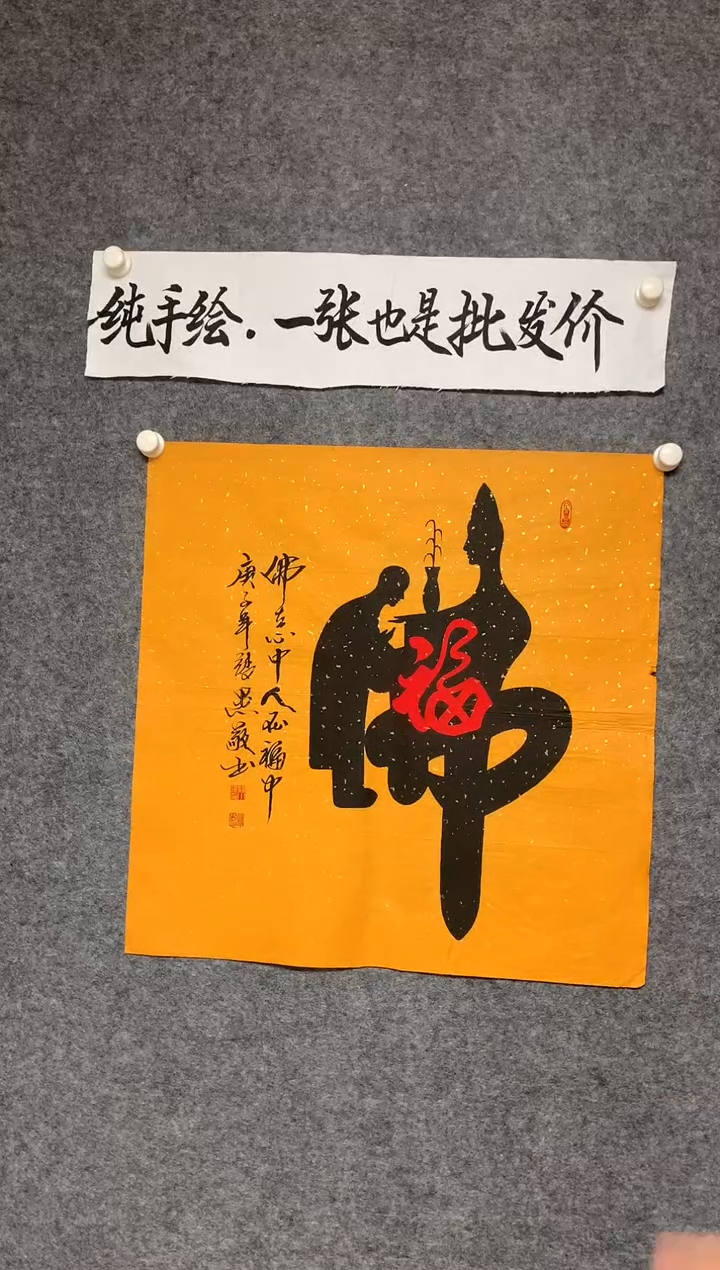 纯手绘.一张也是批发价
佛
福
佛在心中人在福中
庚子年 愚敬书